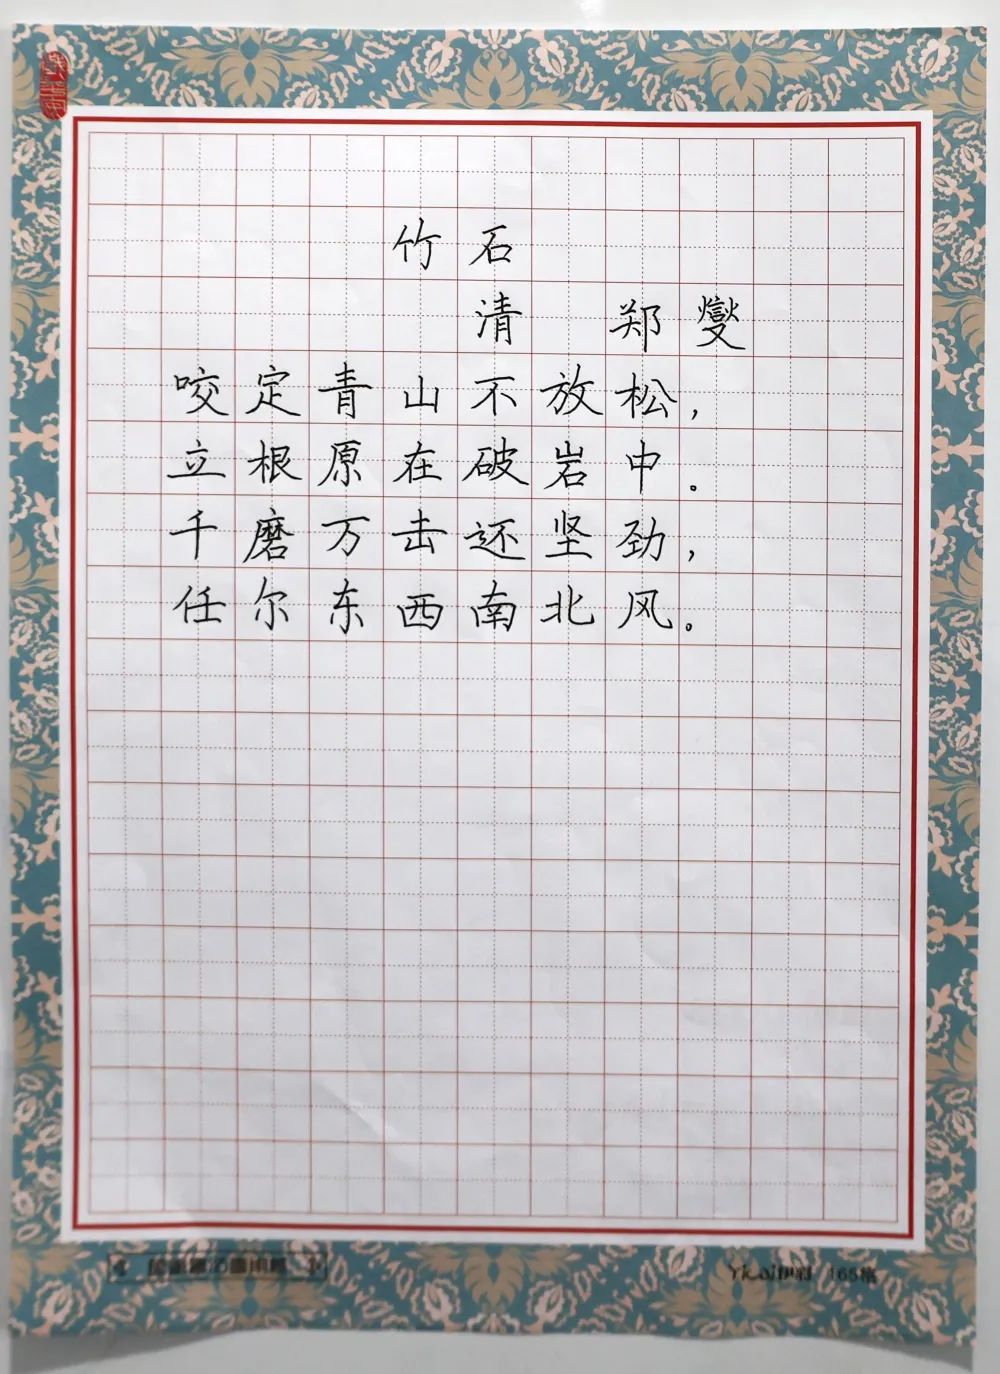 竹石
清 郑燮
咬定青山不放松，
立根原在破岩中。
千磨万击还坚劲，
任尔东西南北风。
165格